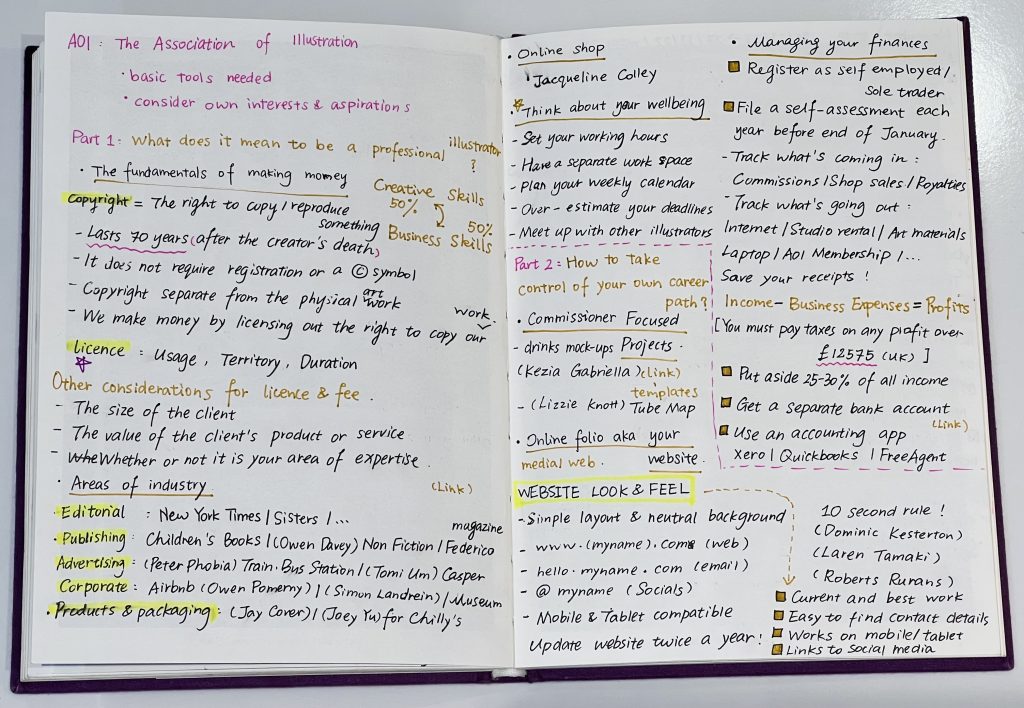 AOI : The Association of Illustration
· basic tools needed
· consider own interests & aspirations
Part 1: What does it mean to be a professional illustrator ?
· The fundamentals of making money
Creative Skills
50%
50%
Business Skills
Copyright = The right to copy / reproduce something
- Lasts 70 years (after the creator's death)
- It does not require registration or a © symbol
- Copyright separate from the physical art work
- We make money by licensing out the right to copy our work.
Licence : Usage, Territory, Duration
Other considerations for licence & fee.
- The size of the client
- The value of the client's product or service
- Whe Whether or not it is your area of expertise.
· Areas of industry (Link)
· Editorial : New York Times / Sisters / ... magazine
· Publishing : Children's Books / (Owen Davey) Non Fiction / Federico
Advertising : (Peter Phobia) Train. Bus Station / (Tomi Um) Casper
Corporate : Airbnb (Owen Pomerny) / (Simon Landrein) / Museum
· Products & packaging : (Jay Cover) / (Joey Yu) for Chilly's
· Online shop
Jacqueline Colley
· Think about your wellbeing
- Set your working hours
- Have a separate work space
- Plan your weekly calendar
- Over-estimate your deadlines
- Meet up with other illustrators
Part 2: How to take
control of your own career
path?
· Commissioner Focused
- drinks mock-ups Projects.
(Kezia Gabriella) (Link)
templates
- (Lizzie Knott) Tube Map
· Online folio aka your
medial web. website
WEBSITE LOOK & FEEL
- Simple layout & neutral background
- www.(myname).com (web)
- hello.myname.com (email)
- @ myname (Socials)
- Mobile & Tablet compatible
Update website twice a year!
· Managing your finances
Register as self employed/
Sole trader
File a self-assessment each
year before end of January.
- Track what's coming in :
Commissions / Shop sales / Royalties
- Track what's going out :
Internet / Studio rental / Art materials
Laptop / AOI Membership / ...
Save your receipts !
Income - Business Expenses = Profits
[You must pay taxes on any profit over
£12575 (UK) ]
Put aside 25-30% of all income
Get a separate bank account
(Link)
Use an accounting app
Xero / Quickbooks / FreeAgent
10 second rule !
(Dominic Kesterton)
(Laren Tamaki)
(Roberts Rurans)
Current and best work
Easy to find contact details
Works on mobile/tablet
Links to social media